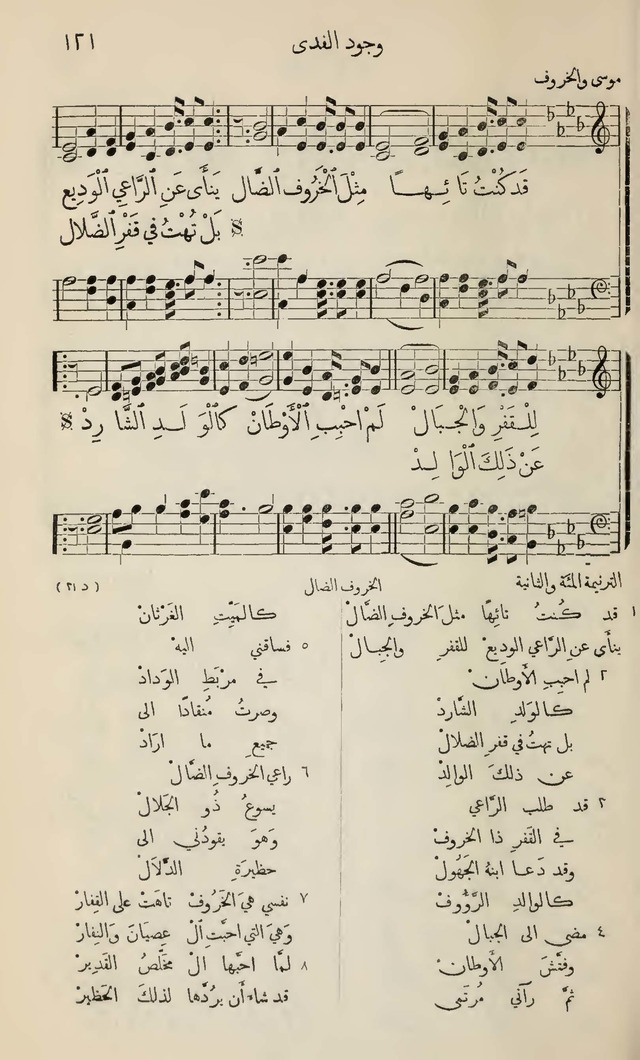 ١٢١ وجود الفدى
موسى والخروف
قَد كُنْتُ تَائِهًا مِثْلَ ٱلْخَرُوفِ ٱلضَّال يَنأَى عَنِ ٱلرَّاعِي ٱلْوَدِيع
بَلْ تُهْتُ فِي قَفْرِ ٱلضَّلال
لِلْقَفْرِ وَٱلْجِبَالْ لَمْ احْبِبِ ٱلْأَوْطَانْ كَٱلْوَلَدِ ٱلشَّارِدْ
عَنْ ذَلِكَ ٱلْوَالِدْ
الترنيمة المئة والثانية الخروف الضال (د ٢١)
١ قد كُنتُ تائِهًا مثلَ الخروفِ الضَّالْ
ينأَى عنِ الرَّاعي الوديعْ للقفرِ والجِبالْ
٢ لم احبِبِ الأَوطانْ
كالوَلدِ الشَّاردْ
بل تهتُ في قفرِ الضلالْ
عن ذلكَ الوالِدْ
٣ قد طلب الرَّاعي
في القَفرِ ذا الخروفْ
وقد دَعا ابنهُ الجَهُولْ
كالوالدِ الرَّؤُوفْ
٤ مضى الى الجبالْ
وفتَّشَ الأَوطانْ
ثمَّ رآني مُرتَمى
كالمَيْتِ الغَرْثانْ
٥ فساقني اليهْ
في مرْبَطِ الوَدادْ
وصرتُ مُنقادًا الى
جميعِ ما ارَادْ
٦ راعي الخروفِ الضَّالْ
يسوعُ ذُو الجَلالْ
وَهوَ يقودُني الى
حظيرَةِ الدَّلاَلْ
٧ نفسي هيَ الخَرُوفْ تاهَتْ على القِفارْ
وَهيَ التي احبَّتِ ٱلْ عِصيَانَ وَالنِفارْ
٨ لمَّا احبَّها الْ مخلّصُ القَديرْ
قد شاءَ أَن يرُدَّها لذلكَ الحَظيرْ